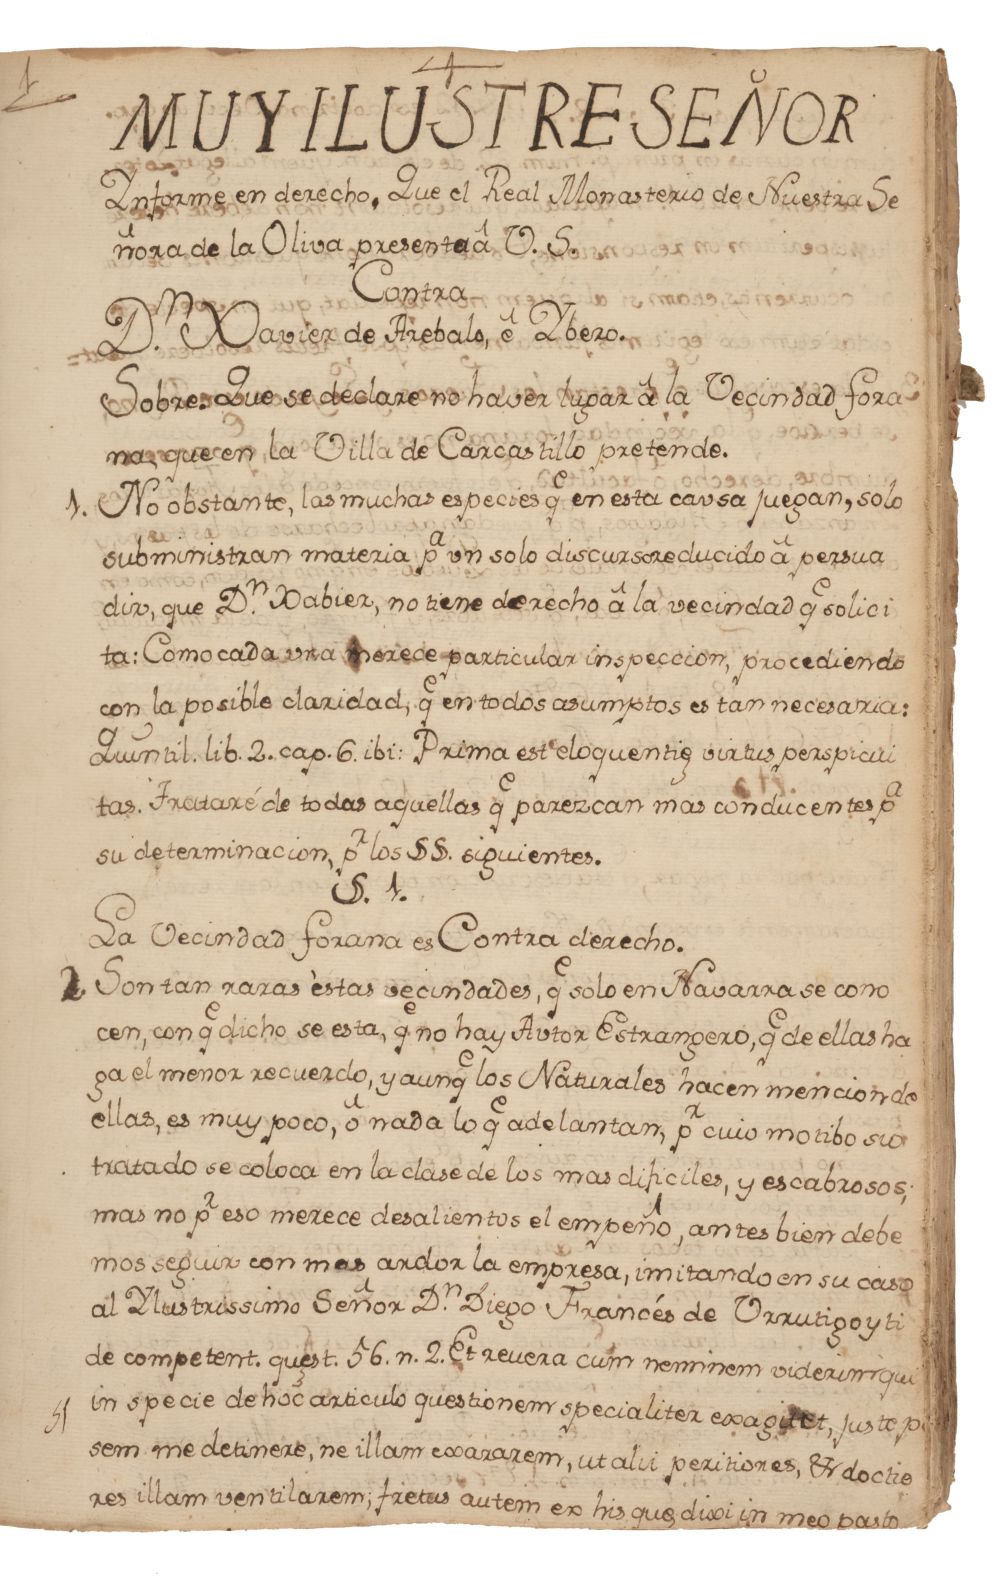 1
4
MUY ILUSTRE SEÑOR
Ynforme en derecho, Que el Real Monasterio de Nuestra Se
ñora de la Oliva presenta â V. S.
Contra
D.ⁿ Xavier de Arebalo, ê Ybero.
Sobre. Que se declare no haver lugar â la Vecindad fora
na, que en la Villa de Carcastillo pretende.
1. No obstante, las muchas especies qᵉ en esta causa juegan, solo
subministran materia pᵃ un solo discurso reducido â persua
dir, que D.ⁿ Xabier, no tiene derecho â la vecindad qᵉ solici
ta: Como cada una merece particular inspeccion, procediendo
con la posible claridad, qᵉ en todos asumptos es tan necesaria:
Quintil. lib. 2. cap. 6. ibi: Prima est eloquentię virtus perspicui
tas. Trataré de todas aquellas qᵉ parezcan mas conducentes pᵃ
su determinacion, pʳ los §§. siguientes.
§. 1.
La Vecindad forana es Contra derecho.
2. Son tan raras èstas vecindades, qᵉ solo en Navarra se cono
cen, con qᵉ dicho se esta, qᵉ no hay Autor Estrangero, qᵉ de ellas ha
ga el menor recuerdo, y aunqᵉ los Naturales hacen mencion de
ellas, es muy poco, ô nada lo qᵉ adelantan, pʳ cuio motibo su
tratado se coloca en la clase de los mas dificiles, y escabrosos;
mas no pʳ eso merece desalientos el empeño, antes bien debe
mos seguir con mas ardor la empresa, imitando en su caso
al Ylustrissimo Señor D.ⁿ Diego Francés de Urrutigoyti
de competent. quęst. 56. n. 2. Et revera cum neminem viderim qui
in specie de hoc articulo questionem specialiter exagitet, juste po
sem me detinere, ne illam exararem, ut alii peritiores, & doctio
res illam ventilarem; fretus autem ex his quę dixi in meo pasto